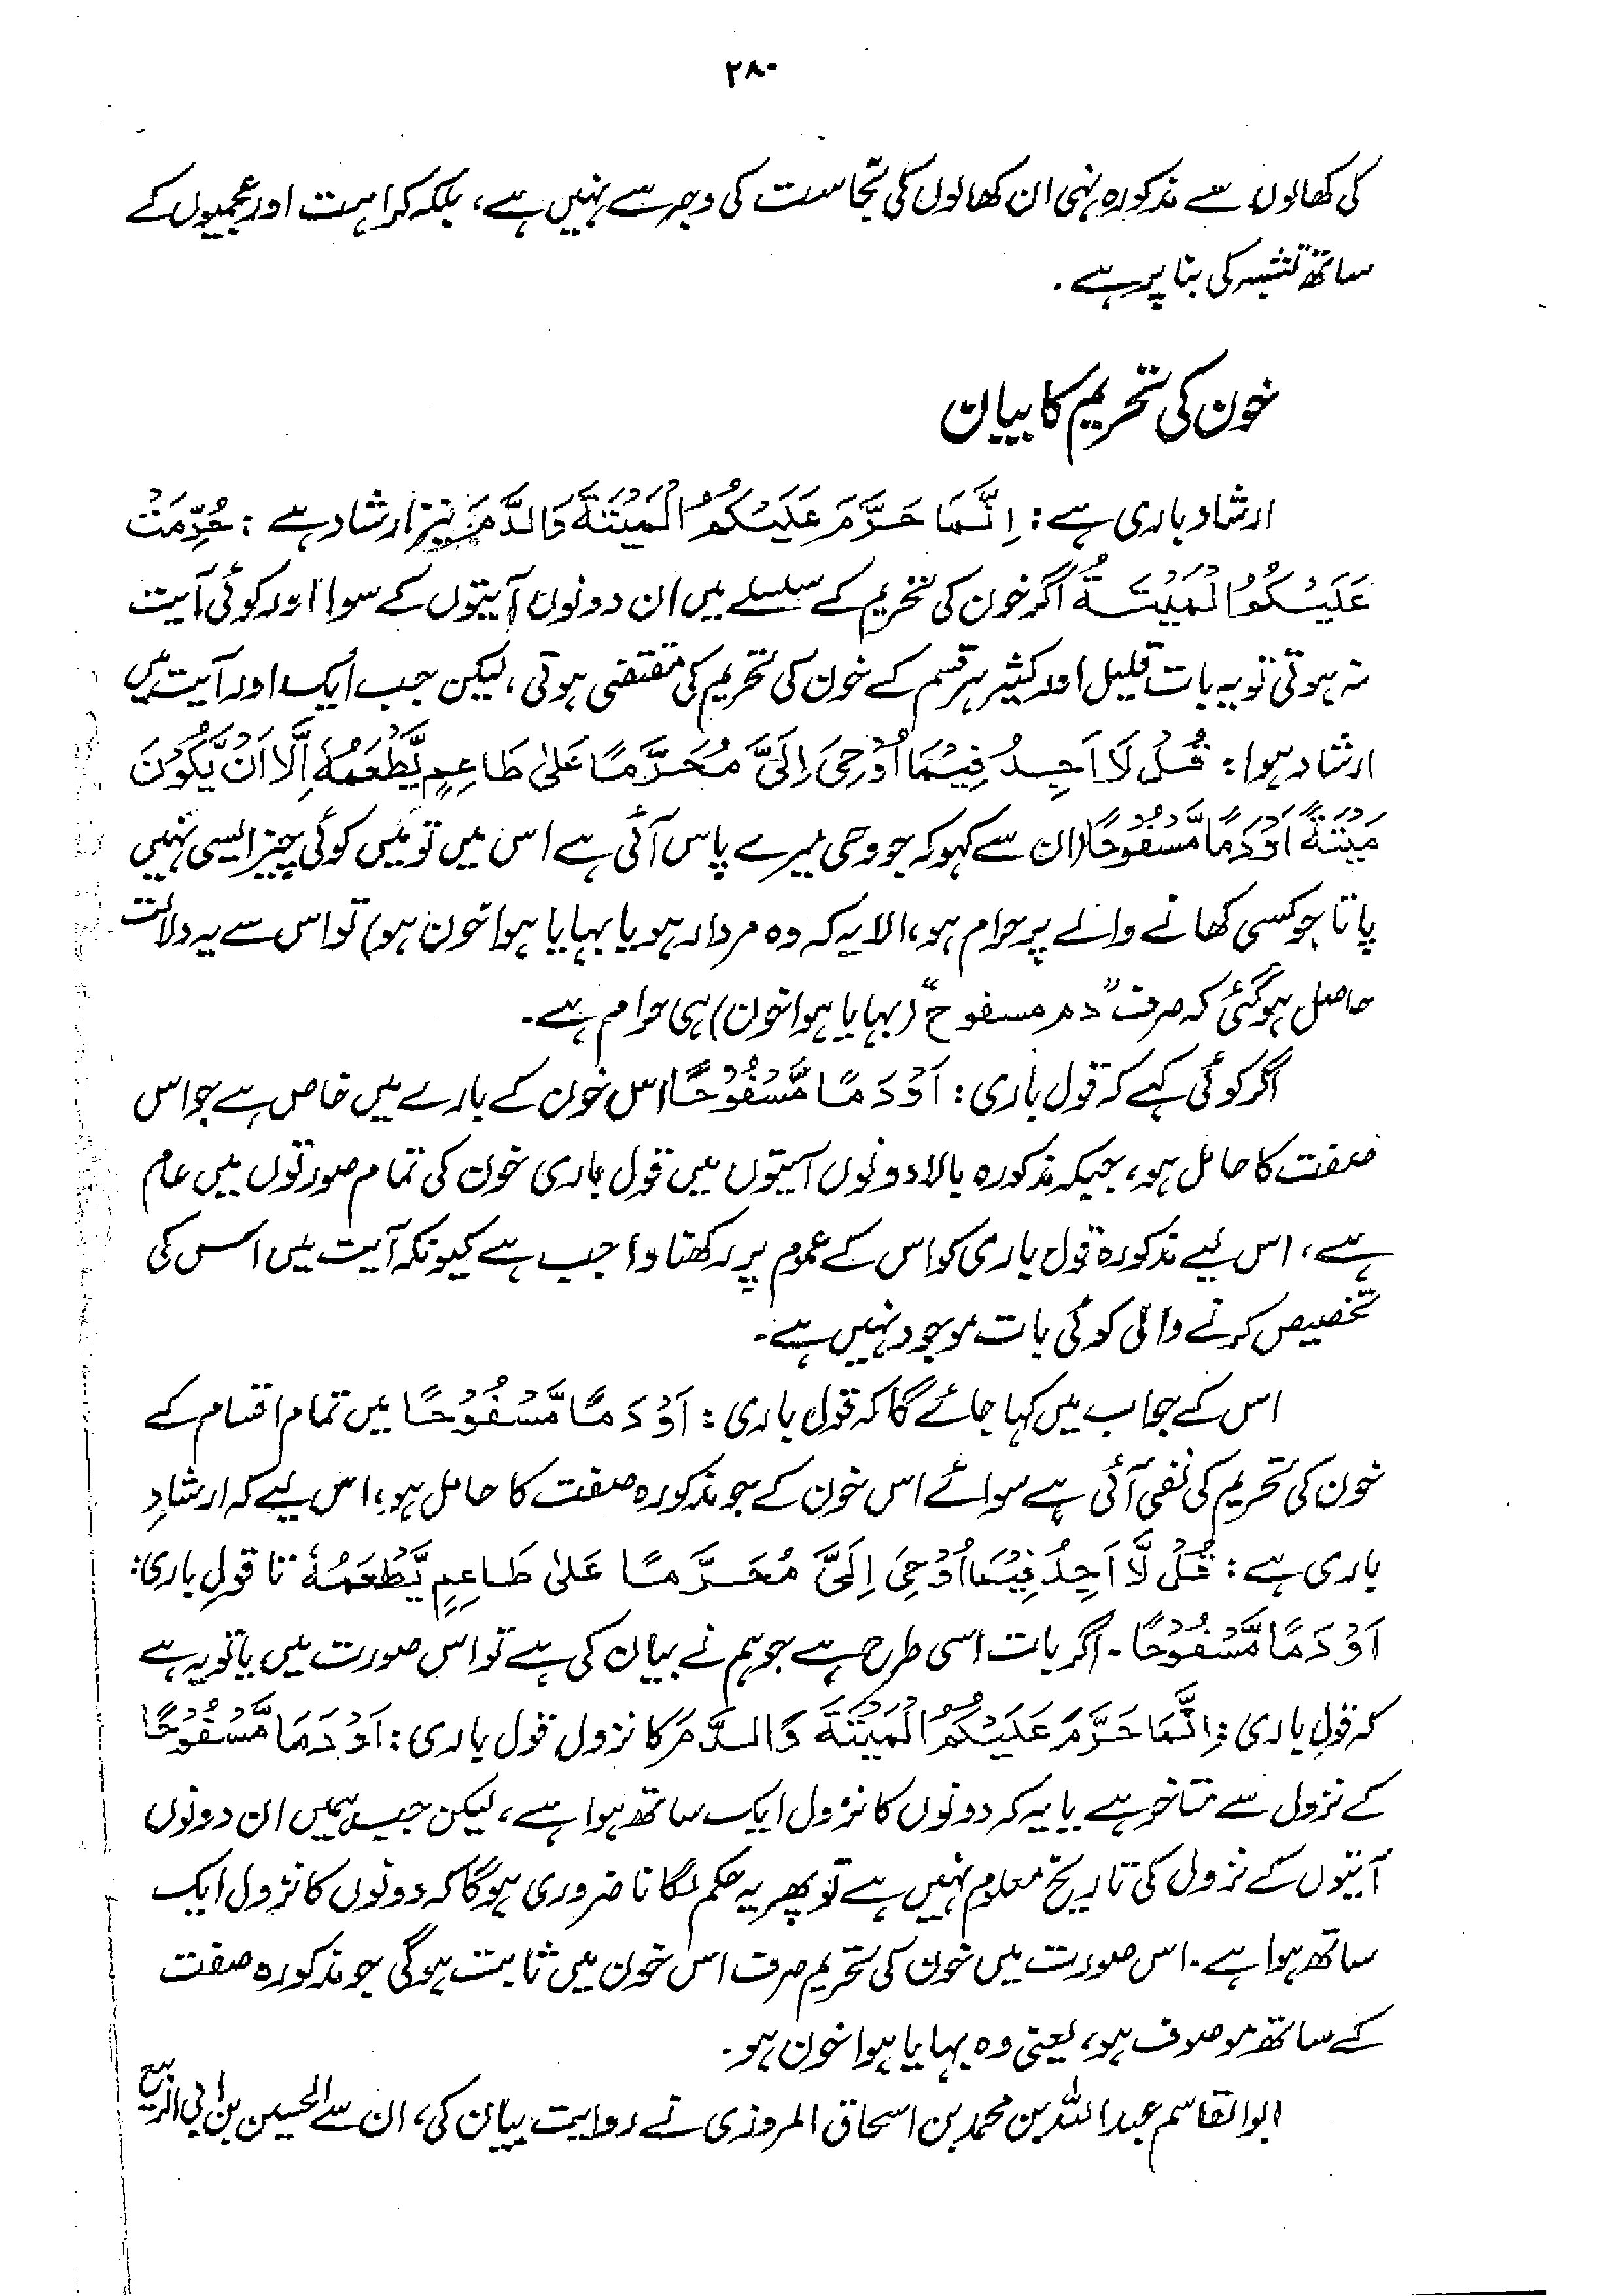 ۲۸۰
کی کھالوں سے مذکورہ نہی ان کھالوں کی نجاست کی وجہ سے نہیں ہے، بلکہ کراہت اور عجمیوں کے
ساتھ تشبہ کی بنا پر ہے۔
خون کی تحریم کا بیان
ارشاد باری ہے: اِنَّمَا حَرَّمَ عَلَیْکُمُ الْمَیْتَةَ وَالدَّمَ نیز ارشاد ہے: حُرِّمَتْ
عَلَیْکُمُ الْمَیْتَةُ اگر خون کی تحریم کے سلسلے میں ان دونوں آیتوں کے سوا اور کوئی آیت
نہ ہوتی تو یہ بات قلیل اور کثیر ہر قسم کے خون کی تحریم کی مقتضی ہوتی، لیکن جب ایک اور آیت میں
ارشاد ہوا: قُلْ لَا اَجِدُ فِیْمَا اُوْحِیَ اِلَیَّ مُحَرَّمًا عَلیٰ طَاعِمٍ یَّطْعَمُهٗ اِلَّا اَنْ یَّکُوْنَ
مَیْتَةً اَوْ دَمًا مَّسْفُوْحًا (ان سے کہو کہ جو وحی میرے پاس آئی ہے اس میں تو میں کوئی چیز ایسی نہیں
پاتا جو کسی کھانے والے پر حرام ہو، الا یہ کہ وہ مردار ہو یا بہایا ہوا خون ہو) تو اس سے یہ دلالت
حاصل ہو گئی کہ صرف "دم مسفوح" (بہایا ہوا خون) ہی حرام ہے۔
اگر کوئی کہے کہ قول باری: اَوْ دَمًا مَّسْفُوْحًا اس خون کے بارے میں خاص ہے جو اس
صفت کا حامل ہو، جبکہ مذکورہ بالا دونوں آیتوں میں قول باری خون کی تمام صورتوں میں عام
ہے، اس لیے مذکورہ قول باری کو اس کے عموم پر رکھنا واجب ہے کیونکہ آیت میں اس کی
تخصیص کرنے والی کوئی بات موجود نہیں ہے۔
اس کے جواب میں کہا جائے گا کہ قول باری: اَوْ دَمًا مَّسْفُوْحًا میں تمام اقسام کے
خون کی تحریم کی نفی آئی ہے سوائے اس خون کے جو مذکورہ صفت کا حامل ہو، اس لیے کہ ارشادِ
باری ہے: قُلْ لَّا اَجِدُ فِیْمَا اُوْحِیَ اِلَیَّ مُحَرَّمًا عَلیٰ طَاعِمٍ یَّطْعَمُهٗ تا قولِ باری:
اَوْ دَمًا مَّسْفُوْحًا۔ اگر بات اسی طرح ہے جو ہم نے بیان کی ہے تو اس صورت میں یا تو یہ ہے
کہ قولِ باری: اِنَّمَا حَرَّمَ عَلَیْکُمُ الْمَیْتَةَ وَالدَّمَ کا نزول قول باری: اَوْ دَمًا مَّسْفُوْحًا
کے نزول سے متاخر ہے یا یہ کہ دونوں کا نزول ایک ساتھ ہوا ہے، لیکن جب ہمیں ان دونوں
آیتوں کے نزول کی تاریخ معلوم نہیں ہے تو پھر یہ حکم لگانا ضروری ہوگا کہ دونوں کا نزول ایک
ساتھ ہوا ہے۔ اس صورت میں خون کی تحریم صرف اس خون میں ثابت ہوگی جو مذکورہ صفت
کے ساتھ موصوف ہو، یعنی وہ بہایا ہوا خون ہو۔
ابوالقاسم عبداللہ بن محمد بن اسحاق المروزی نے روایت بیان کی، ان سے الحسین بن ابی الربیع